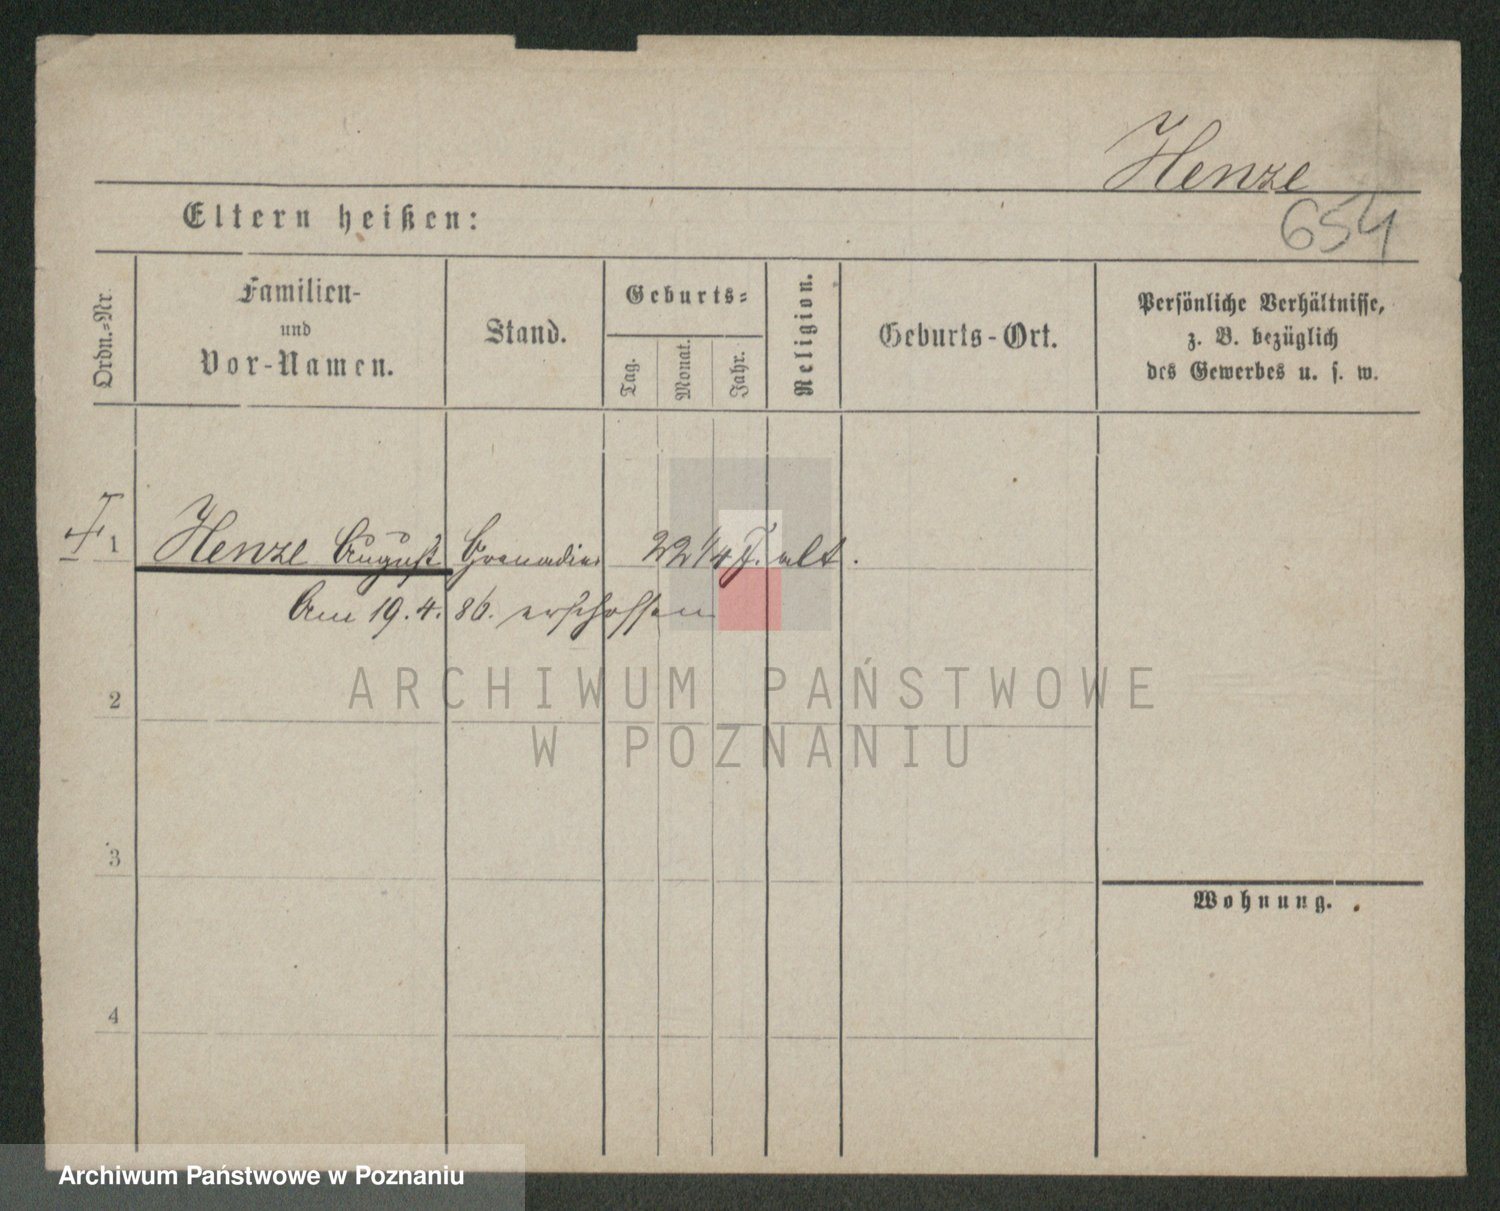 Henze
654
Eltern heißen:
Ordn.-Nr.
Familien-
und
Vor-Namen.
Stand.
Geburts-
Tag.
Monat.
Jahr.
Religion.
Geburts-Ort.
Persönliche Verhältnisse,
z. B. bezüglich
des Gewerbes u. s. w.
1 Henze August Grenadier 22 1/4 J. alt.
Am 19. 4. 86. erschossen
2
ARCHIWUM PAŃSTWOWE
W POZNANIU
3
Wohnung.
4
Archiwum Państwowe w Poznaniu